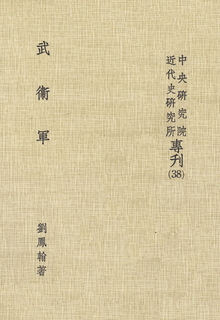 中央研究院
近代史研究所
專刊
(38)
武衛軍
劉鳳翰著